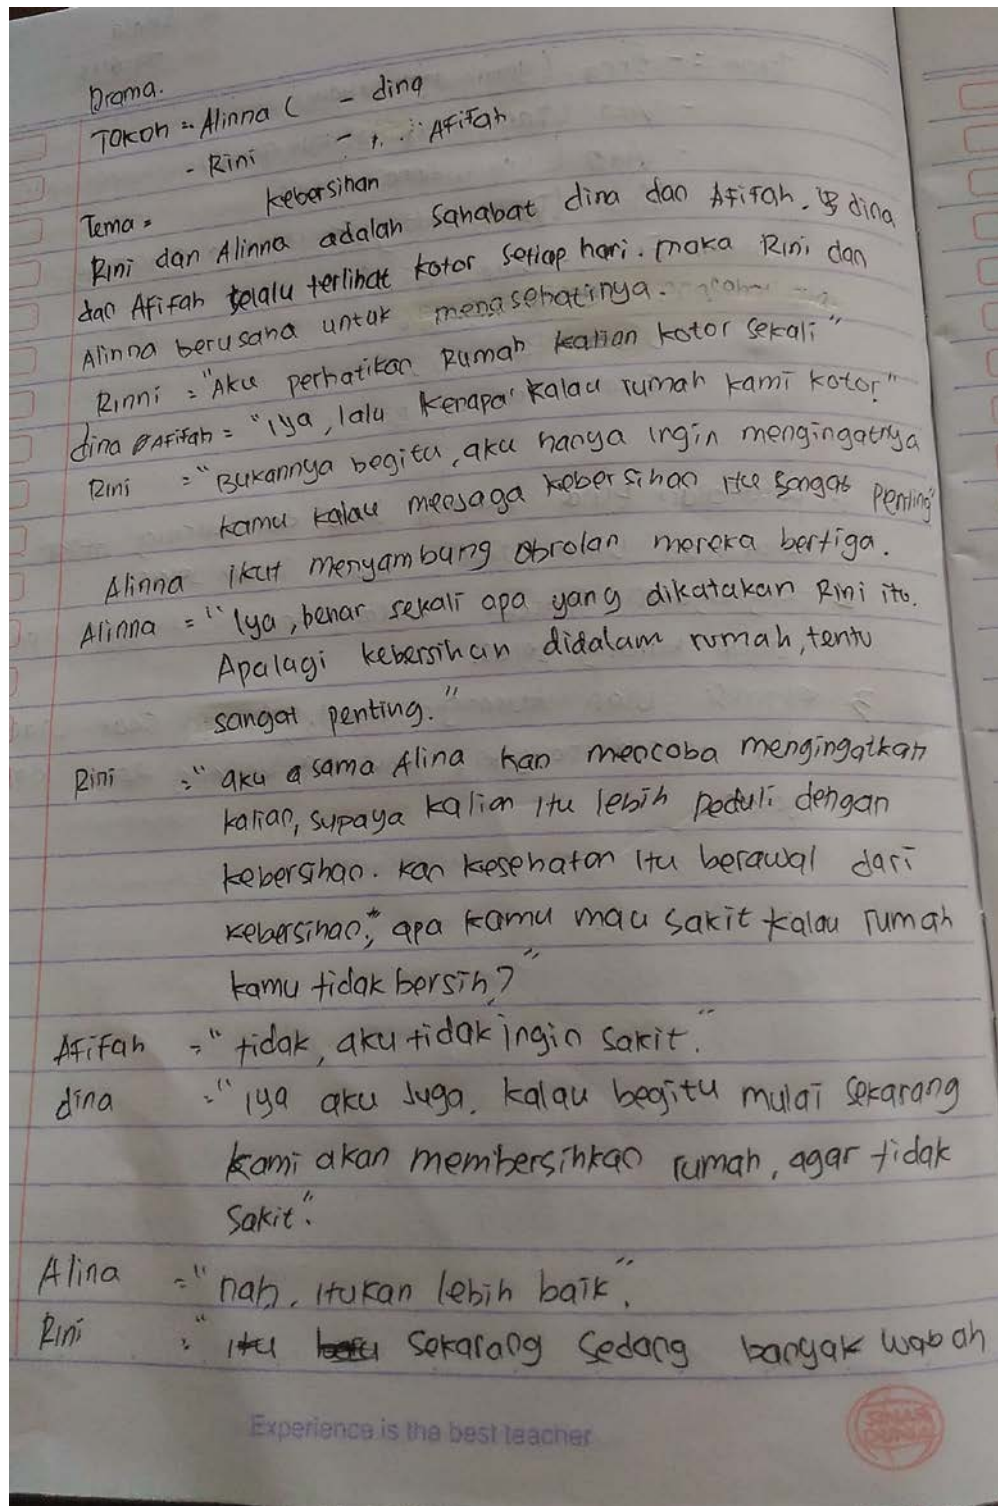 Drama.
TOKOH = Alinna ( - dina
- Rini - Afifah
Tema = kebersihan
Rini dan Alinna adalah sahabat dina dan Afifah. dina
dan Afifah selalu terlihat kotor setiap hari. maka Rini dan
Alinna berusaha untuk menasehatinya.
Rinni = "Aku perhatikan Rumah kalian kotor sekali"
dina Afifah = "iya, lalu kenapa kalau rumah kami kotor"
Rini = "Bukannya begitu, aku hanya ingin mengingatnya
kamu kalau menjaga kebersihan itu sangat penting"
Alinna ikut menyambung obrolan mereka bertiga.
Alinna = "Iya, benar sekali apa yang dikatakan Rini itu.
Apalagi kebersihan didalam rumah, tentu
sangat penting."
Rini = "aku a sama Alina kan mencoba mengingatkan
kalian, supaya kalian itu lebih peduli dengan
kebersihan. kan kesehatan itu berawal dari
kebersihan," apa kamu mau sakit kalau rumah
kamu tidak bersih?"
Afifah = "tidak, aku tidak ingin sakit."
dina = "iya aku juga. kalau begitu mulai sekarang
kami akan membersihkan rumah, agar tidak
sakit".
Alina = "nah, itukan lebih baik".
Rini = "itu sekarang sedang banyak wabah
Experience is the best teacher
SINAR
DUNIA